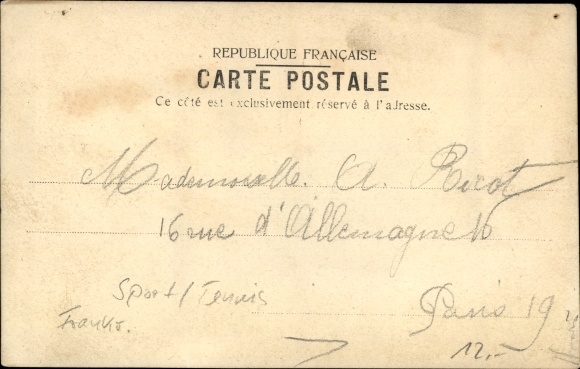 REPUBLIQUE FRANÇAISE
CARTE POSTALE
Ce côté est exclusivement réservé à l'adresse.
Mademoiselle A. Ricot
16 rue d'Allemagne 16
Paris 19
Sport/Tennis
Frankr.
12.-